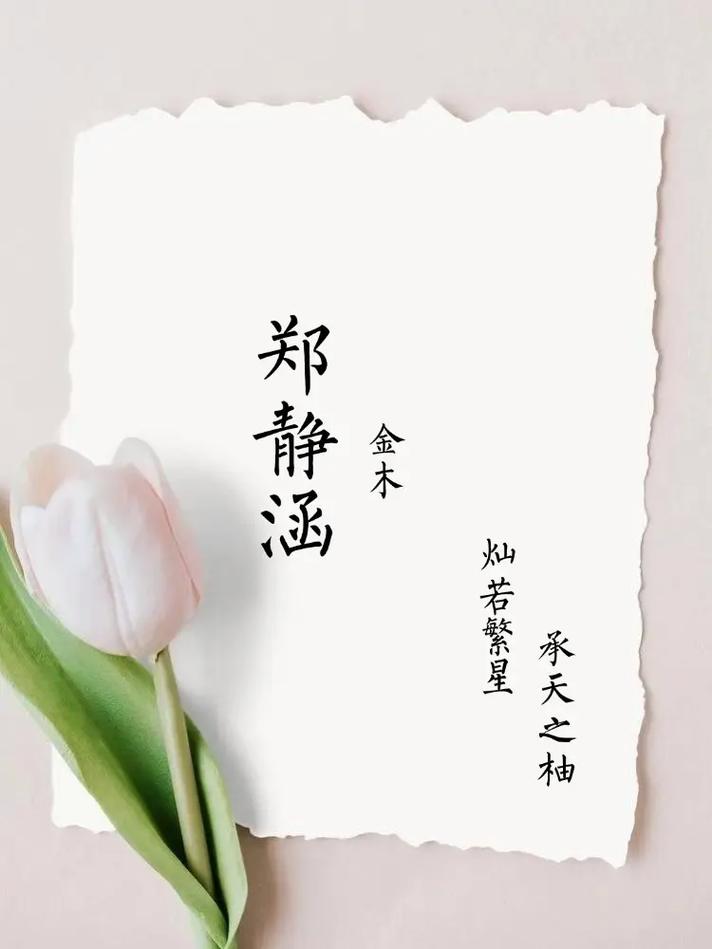 郑静涵
金木
灿若繁星
承天之柚